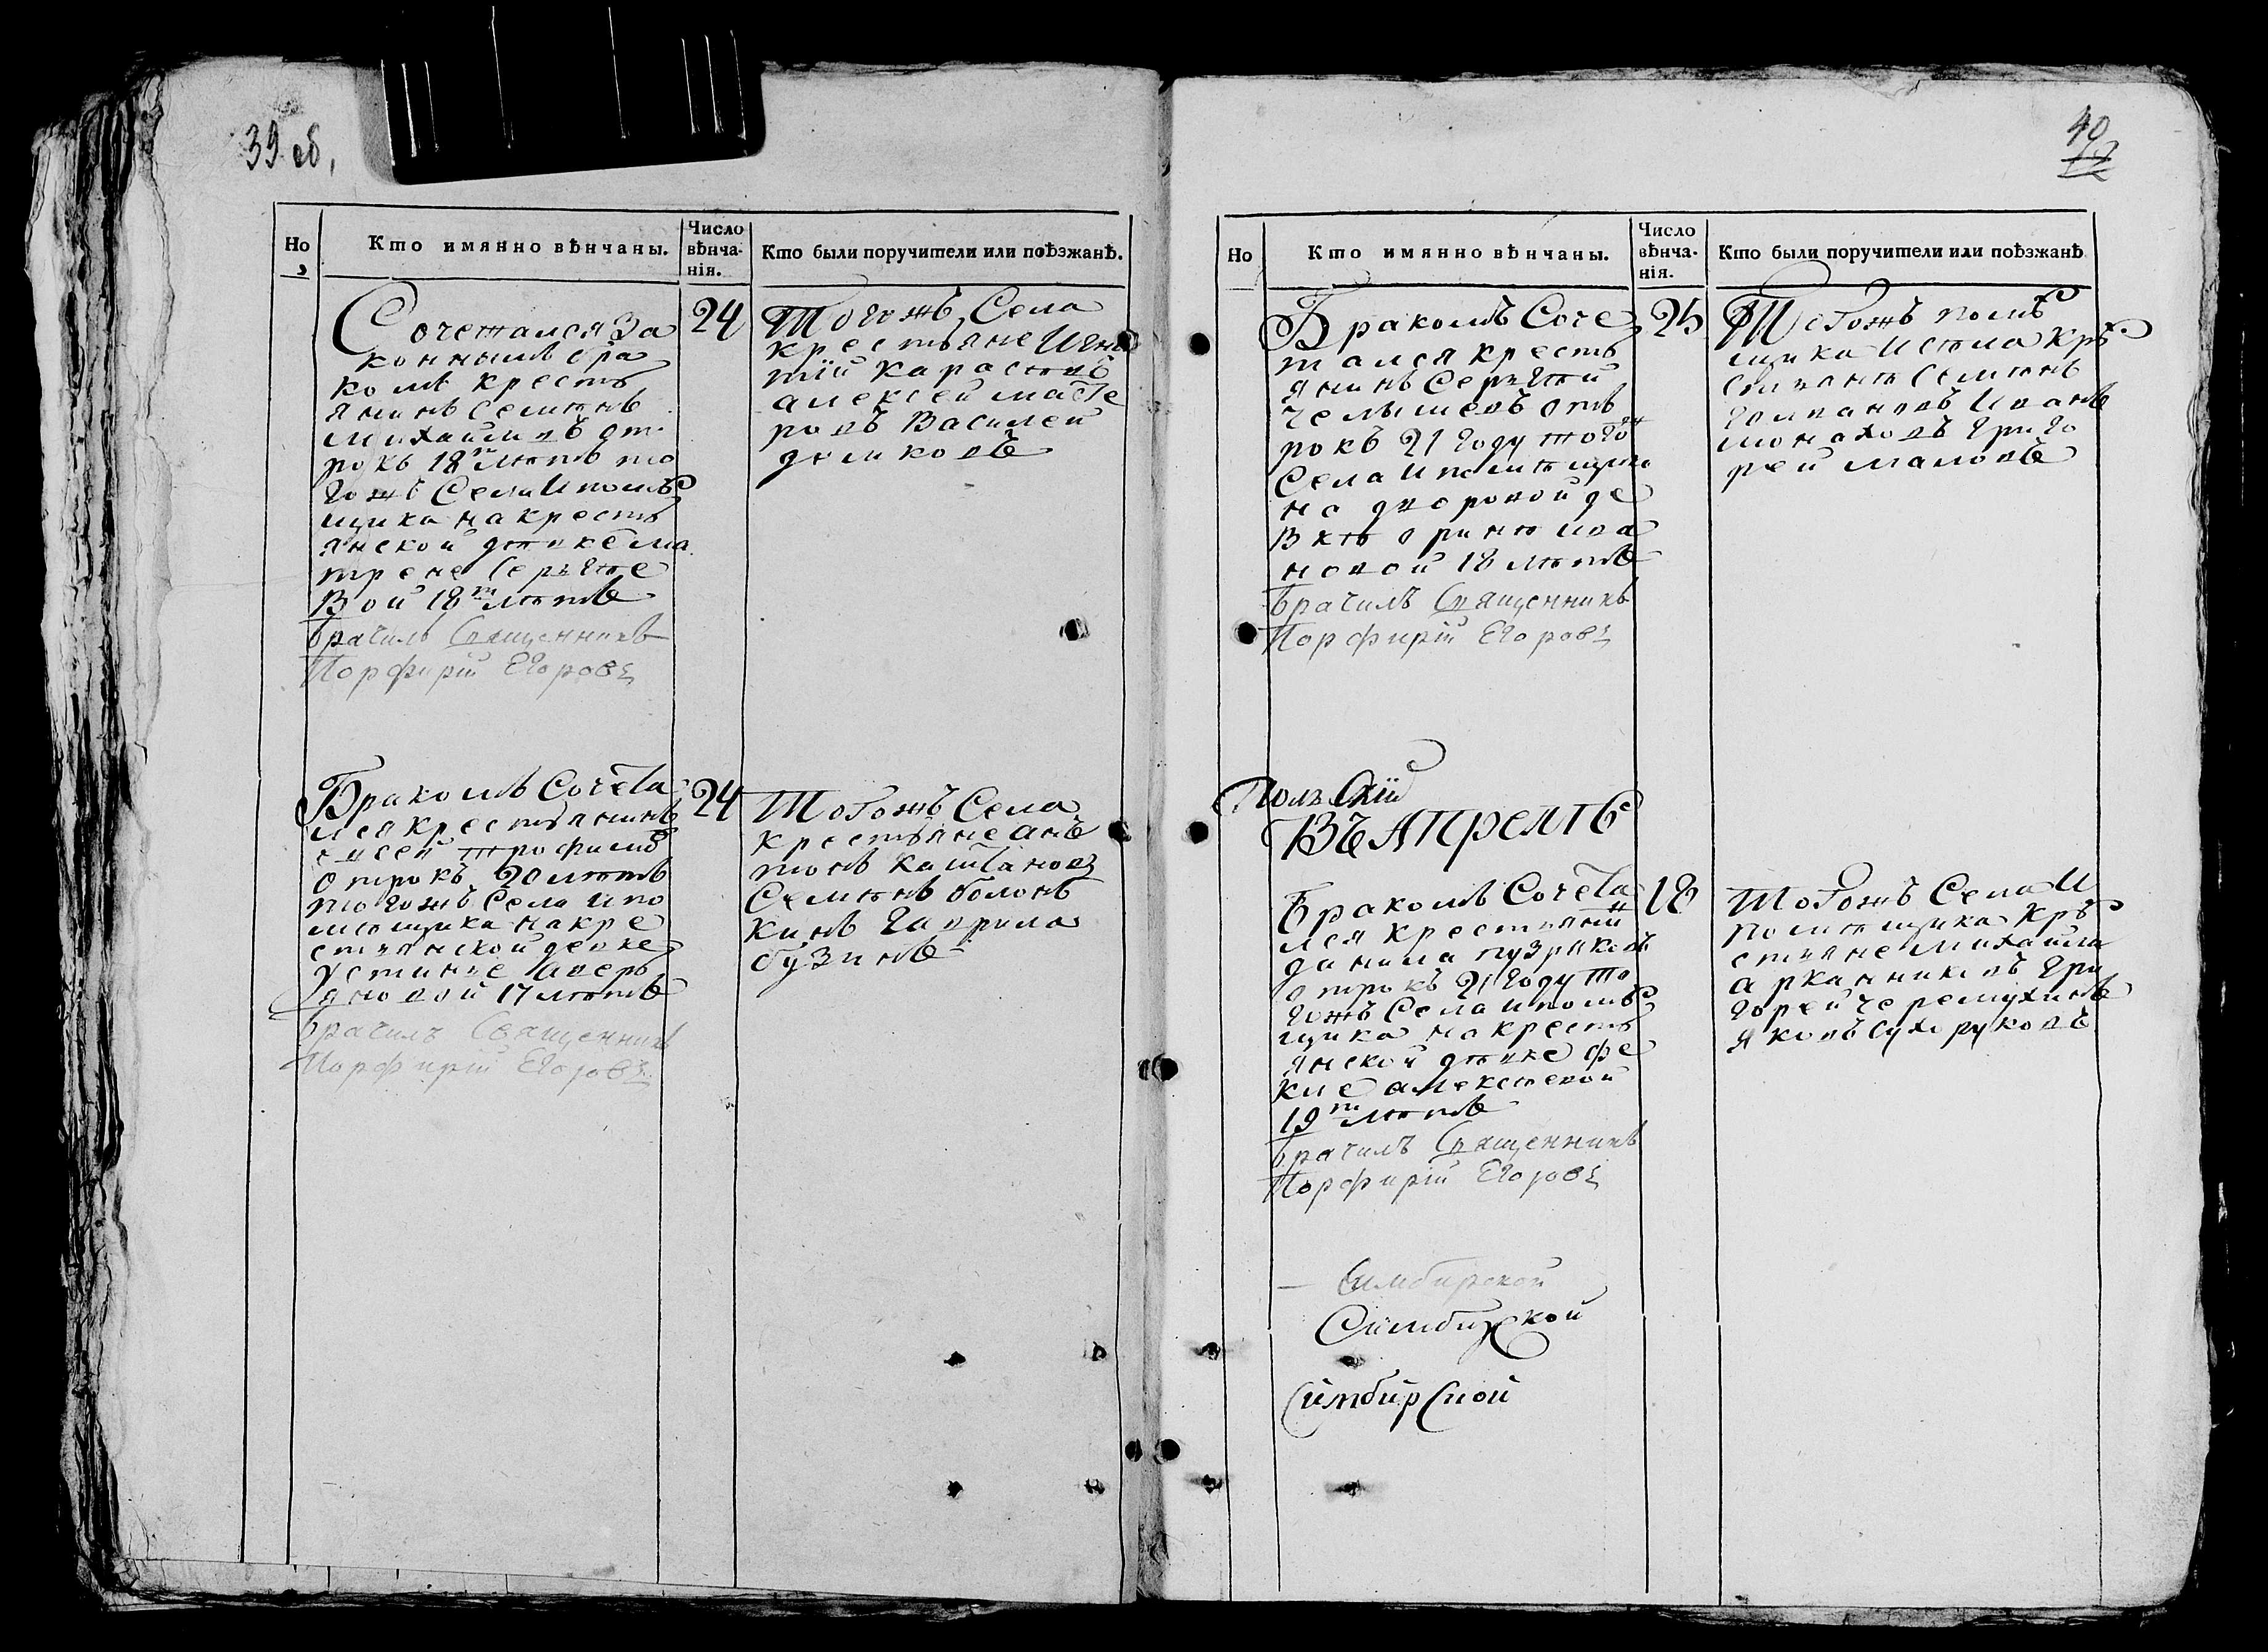 39 об.
Но
Кто имянно вѣнчаны.
Число
вѣнча-
нія.
Кто были поручители или поѣзжанѣ.
Сочетался За
коннымъ бра
комъ кресть
янинъ Семѣнъ
Михайловъ от
рокъ 18т лѣтъ то
гожъ Села И помѣ
щика на кресть
янской дѣвке Ма
трене Сергѣе
вой 18т лѣтъ
Брачилъ Священникъ
Порфирій Егоровъ
24
Тогожъ Села
крестьяне Игна
тій Карастов
алексей
ровъ Василей
домковъ
Бракомъ Сочета
лся крестьянинъ
трофимов
отрокъ 20 лѣтъ
тогожъ Села и по
мѣщика на кре
стьянской девке
устинье аверь
яновой 17 лѣтъ
Брачилъ Священникъ
Порфирій Егоровъ
24
Тогожъ Села
крестьяне ан
тонъ Каштановъ
Семѣнъ болон
кинъ Гаврила
бузинъ
40
Но
Кто имянно вѣнчаны.
Число
вѣнча-
нія.
Кто были поручители или поѣзжанѣ
Бракомъ Соче
тался кресть
янинъ Сергѣй
Челышевъ от
рокъ 21 году того
Села и помѣщика
на дворовой де
вкѣ оринѣ ива
новой 18 лѣтъ
Брачилъ Священникъ
Порфирій Егоровъ
25
Тогожъ помѣ
щика и села кре
стьянѣ Семѣнъ
Иванъ
монаховъ Григо
рей мамовъ
Въ Апрелѣ
Бракомъ Сочета
лся крестьянин
данила пузряковъ
отрокъ 21 году то
гожъ Села и помѣ
щика на кресть
янской дѣвке фе
кле алексѣевой
19т лѣтъ
Брачилъ Священникъ
Порфирій Егоровъ
18
Тогожъ Села И
помѣщика Кре
стьяне Михайла
арканниковъ Гри
горей черемухинъ
яковъ Сухоруковъ
Симбирской
Симбирской
Симбирской